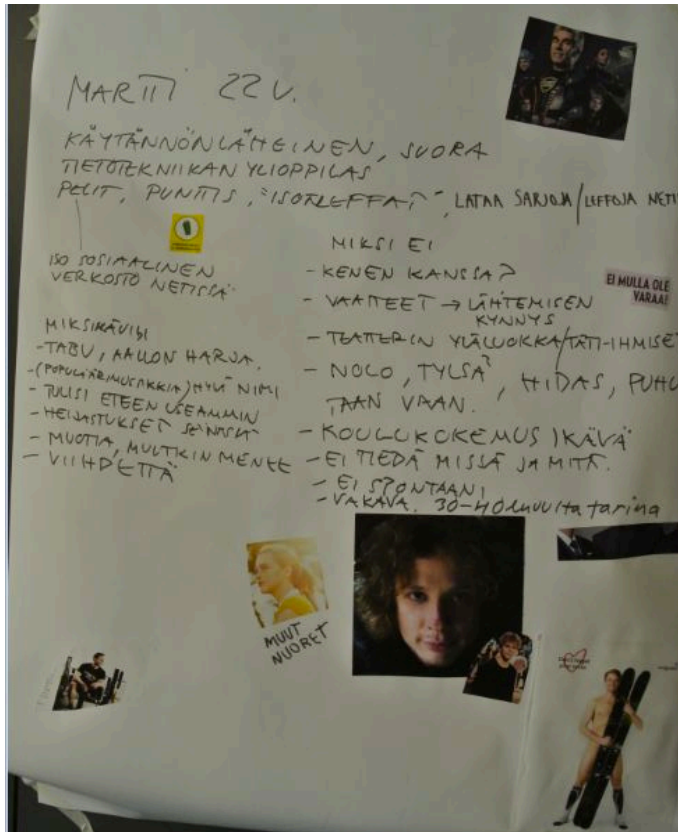 MARTTI 22 V.
KÄYTÄNNÖNLÄHEINEN, SUORA
TIETOTEKNIIKAN YLIOPPILAS
PELIT, PUNTTIS, "ISOTLEFFAT", LATAA SARJOJA/LEFFOJA NETI
ISO SOSIAALINEN
VERKOSTO NETISSÄ
MIKSI KÄVISI
- TABU, AALLON HARJA.
- (POPULÄÄRIMUSIIKKIA) HYVÄ NIMI
- TULISI ETEEN USEAMMIN
- HEIJASTUKSET SEINISSÄ
- MUOTIA, MUUTKIN MENEE
- VIIHDETTÄ
MIKSI EI
- KENEN KANSSA?
- VAATTEET → LÄHTEMISEN
KYNNYS
- TEATTERIN YLÄLUOKKA/TÄTI-IHMISET
- NOLO, TYLSÄ?, HIDAS, PUHU
TAAN VAAN.
- KOULUKOKEMUS IKÄVÄ
- EI TIEDÄ MISSÄ JA MITÄ.
- EI SPONTAANI
- VAKAVA. 30-40 luvulta tarina
EI MULLA OLE
VARAA!
MUUT
NUORET